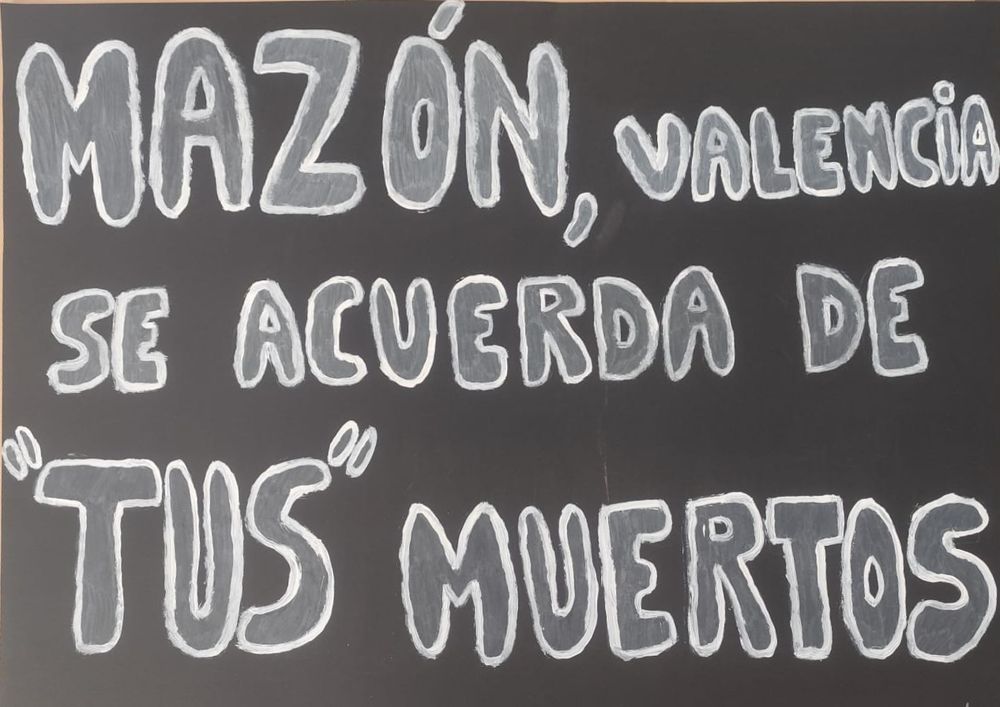 MAZÓN, VALENCIA
SE ACUERDA DE
"TUS" MUERTOS